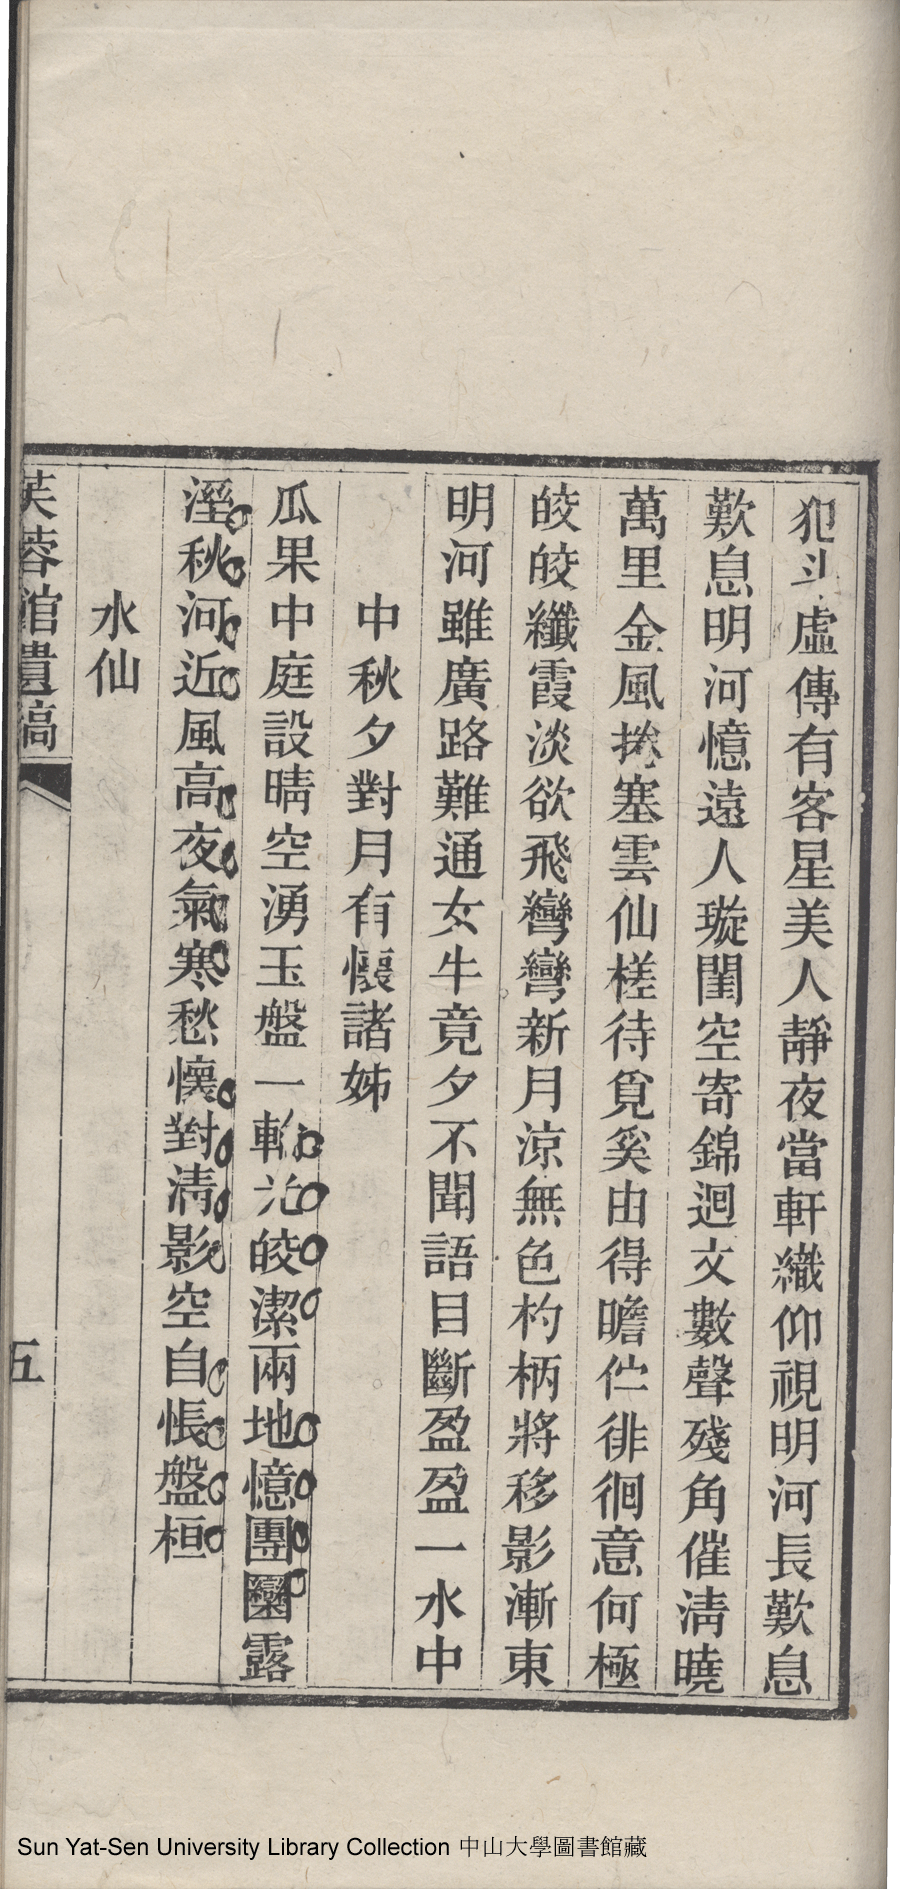 犯斗虛傳有客星美人靜夜當軒織仰視明河長歎息
歎息明河憶遠人璇閨空寄錦迴文數聲殘角催淸曉
萬里金風捲塞雲仙槎待覓奚由得瞻伫徘徊意何極
皎皎纖霞淡欲飛彎彎新月涼無色杓柄將移影漸東
明河雖廣路難通女牛竟夕不聞語目斷盈盈一水中
中秋夕對月有懷諸姊
瓜果中庭設晴空湧玉盤一輪光皎潔兩地憶團圞露
溼秋河近風高夜氣寒愁懷對淸影空自悵盤桓
水仙
芙蓉館遺稿
五
Sun Yat-Sen University Library Collection 中山大學圖書館藏